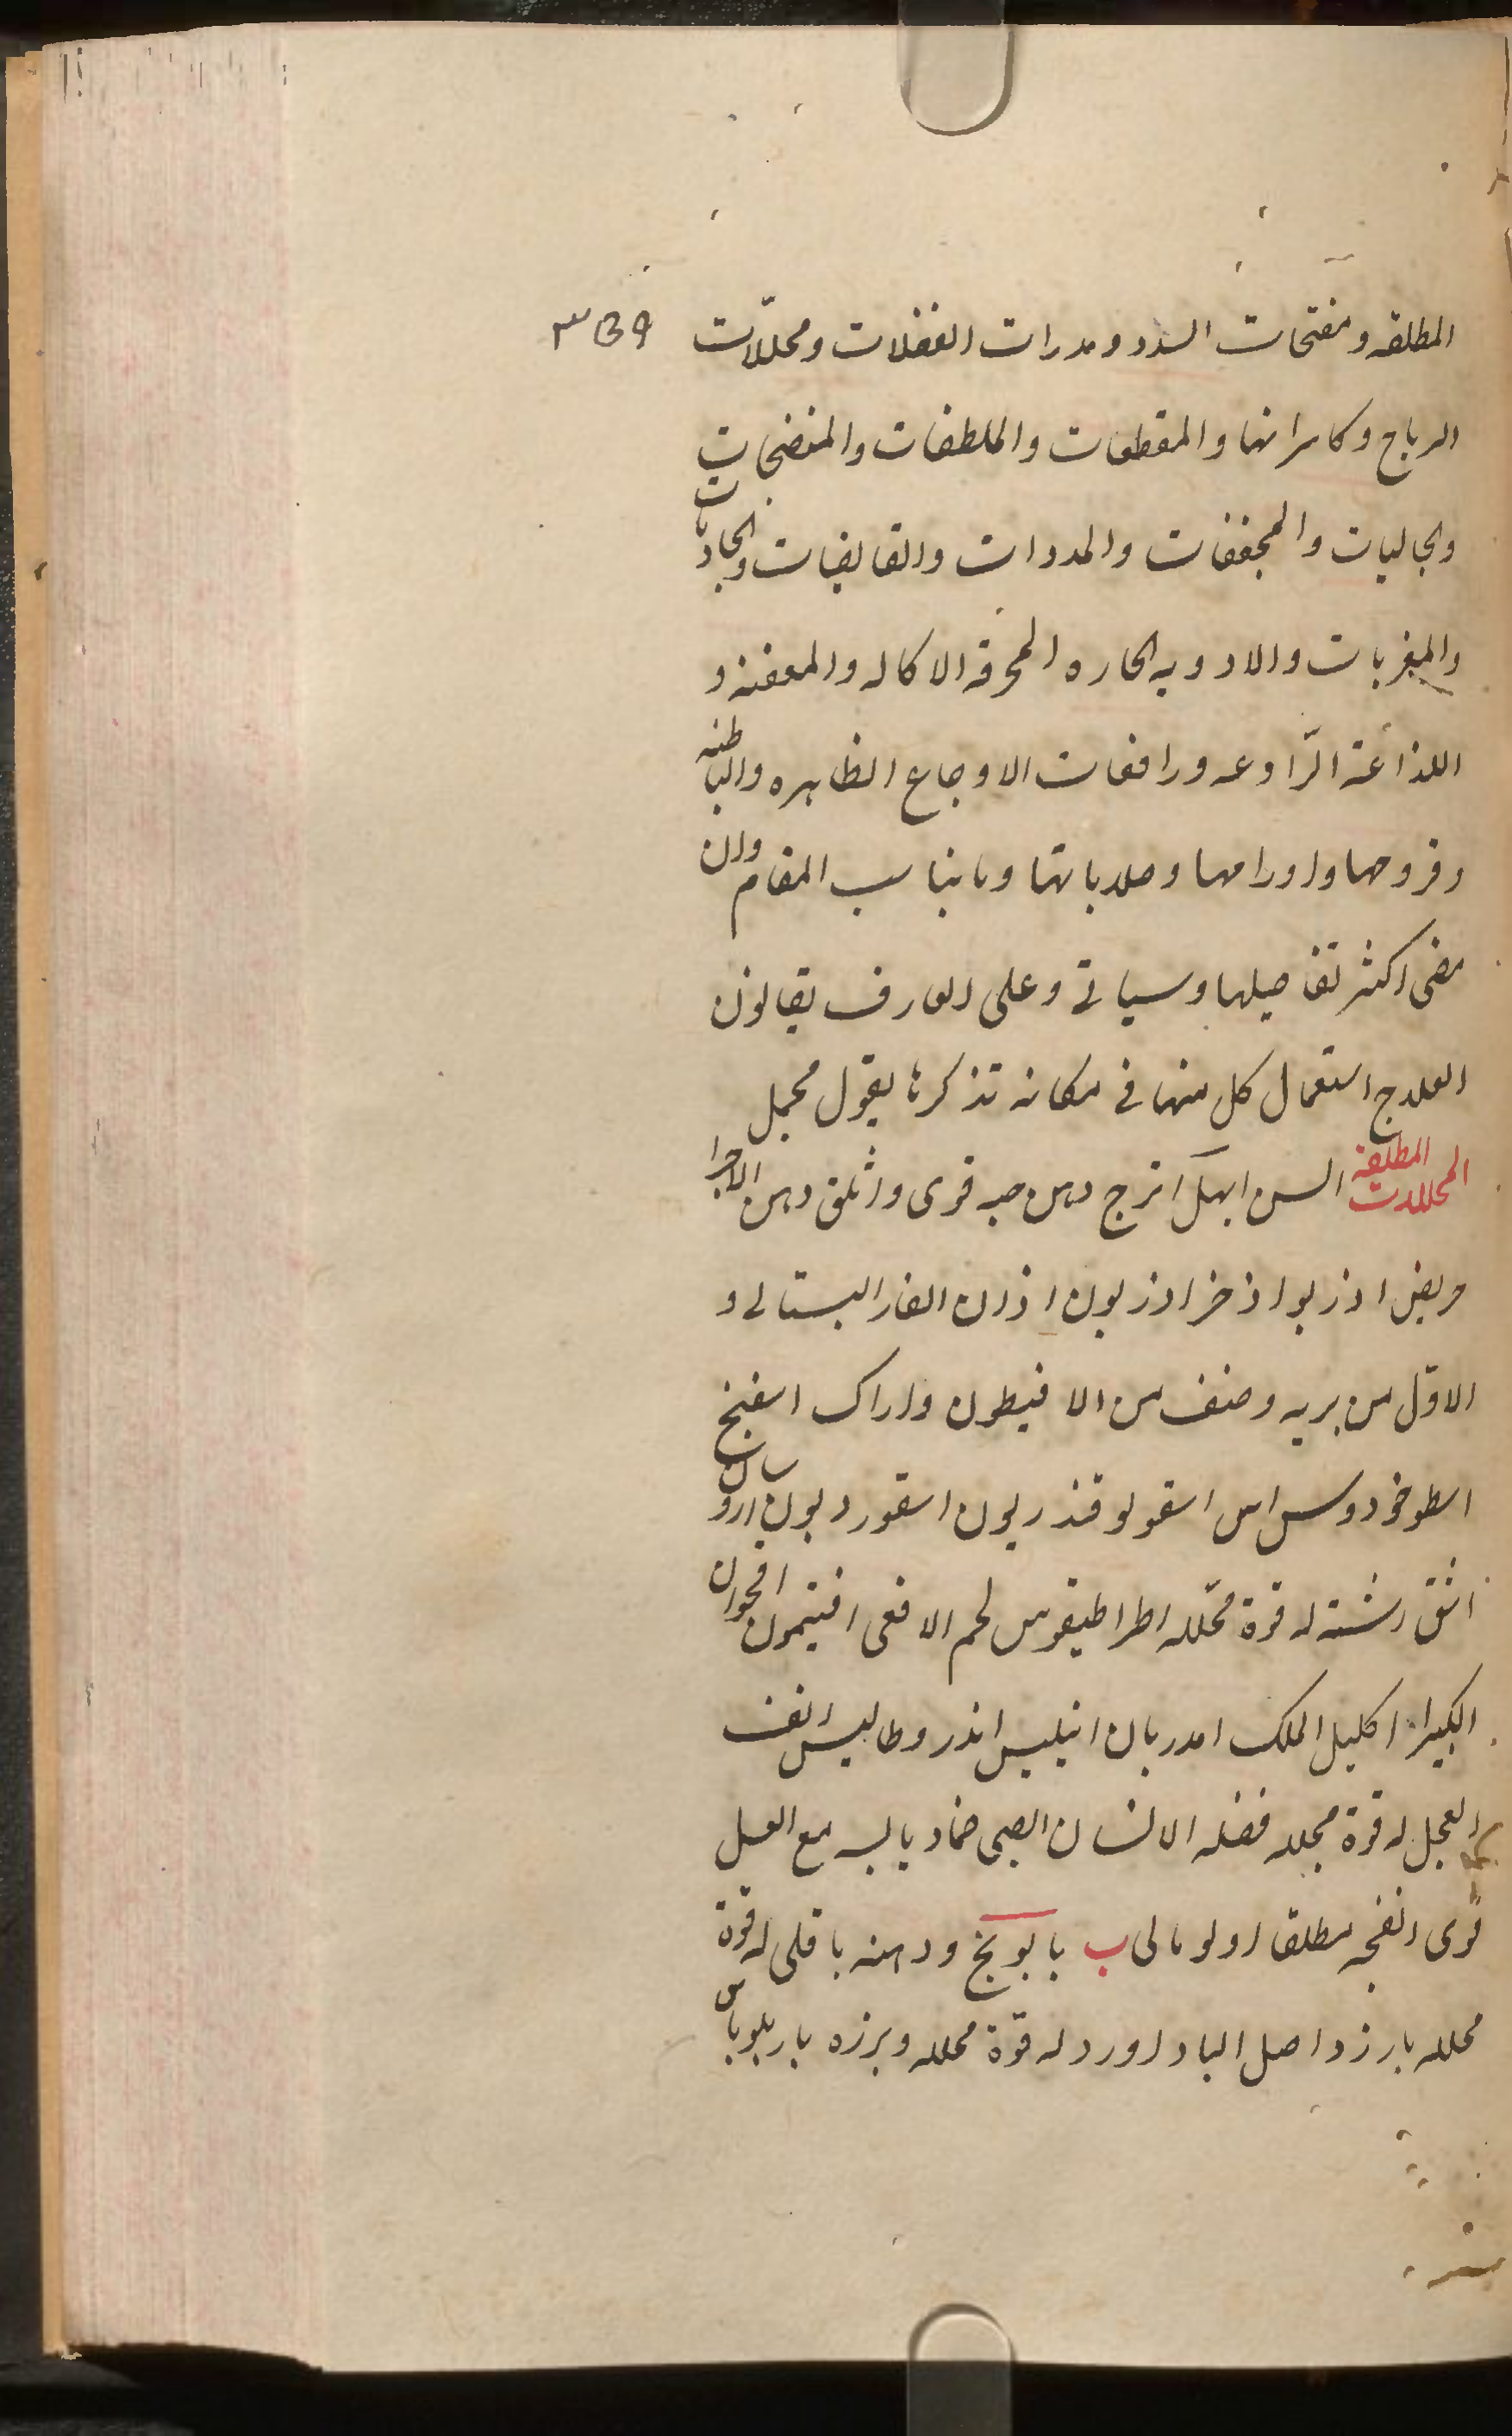 المطلقه ومفتحات السدد ومدرات الفضلات ومحللات
الرياح وكاسراتها والمقطعات والملطفات والمنضجات
والجاليات والمجففات والمددات والقابضات والجاذبات
والمغريات والادويه الحاره المحرقه الاكاله والمعفنه و
اللذاعة الرادعه ورافعات الاوجاع الظاهره والباطنه
وقروحها واورامها وصلاباتها وما يناسب المقام وان
مضى اكثر تفاصيلها وسياتي وعلى العارف بقانون
العلاج استعمال كل منها في مكانه تذكرها بقول مجمل
المحللات المطلقه السن ابهل اترج دهن حبه قوى واثلق دهن الاجر
مربض اذريو اذخر اذريون اذان الفار البستانى و
الاول من بريه وصنف من الافنيطون واراك اسفنج
اسطوخودوس اس اسقولوقندريون اسقورديون ارو
اشق رشته له قوة محلله اطراطيقوس لحم الافعى افتيمون اقحوان
اكليل الملك امدريان انيليس اندروطاليس انف
العجل له قوة محلله فضله الانسان الصبى ضماد يابسه مع العسل
قوى انفحه مطلقا اولومالى ب بابونج ودهنه باقلى له قوة
محلله بارزد اصل الباداورد له قوة محلله وبزره